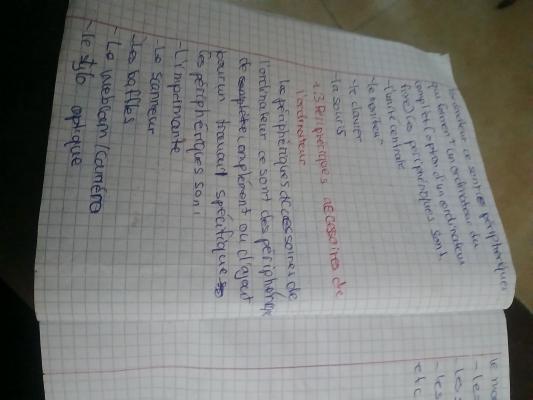 l'ordinateur ce sont les périphériques
qui forment un ordinateur du
complet (option d'un ordinateur
fixe) les périphériques sont
- l'unité centrale
- le moniteur
- le clavier
- la souris
1.3 Périphériques accessoires de
l'ordinateur
Les périphériques accessoires de
l'ordinateur ce sont des périphériques
de complément ou d'ajout
pour un travail spécifique
les périphériques sont
- L'imprimante
- Le scanneur
- Les baffles
- La webcam/caméra
- le stylo optique
- les
etc